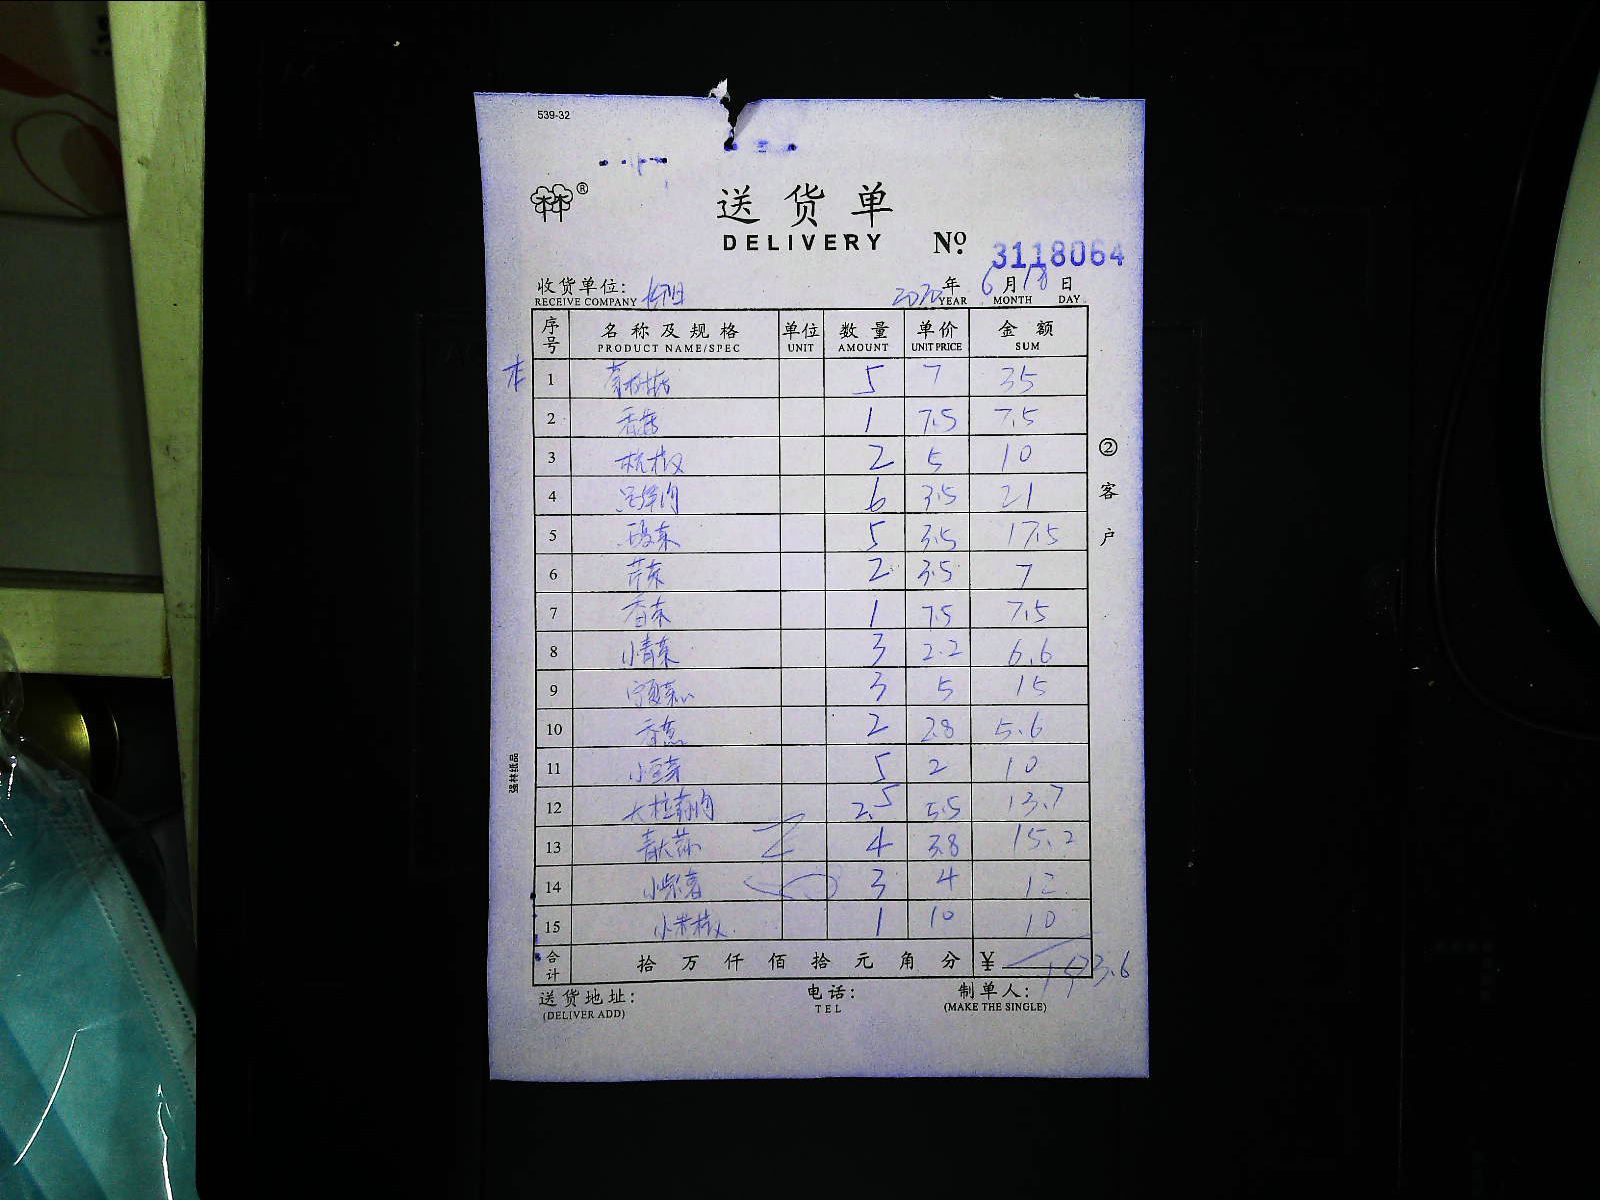 539-32
®
送货单
DELIVERY
No. 3118064
收货单位:
RECEIVE COMPANY
2020年 6月 18日
YEAR MONTH DAY
序号 名称及规格 单位 数量 单价 金额
PRODUCT NAME/SPEC UNIT AMOUNT UNIT PRICE SUM
1 5 7 35
2 香菇 1 7.5 7.5
3 杭椒 2 5 10
4 6 3.5 21
5 5 3.5 17.5
6 芹菜 2 3.5 7
7 香菜 1 7.5 7.5
8 小青菜 3 2.2 6.6
9 宁夏菜心 3 5 15
10 香葱 2 2.8 5.6
11 小豆芽 5 2 10
12 2.5 5.5 13.7
13 4 3.8 15.2
14 小紫薯 3 4 12
15 小米椒 1 10 10
合计 拾 万 仟 佰 拾 元 角 分 ¥ 193.6
送货地址: 电话: 制单人:
(DELIVER ADD) TEL (MAKE THE SINGLE)
②客户
强林纸品